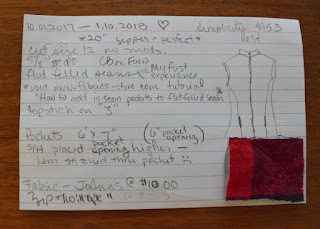 10.01.2017 — 1.10.2018 ♡ Simplicity 4953
Vest
*20" zipper - perfect*
Cut size 12 no mods.
5/8" CB on Fold
flat felled seams ← My first experience
*used www.fabrics-store.com tutorial
"How to add in seam pockets to flat felled seam
Topstitch on "3"
Pockets 6" x 7" (6" pocket opening)
S/H placed pocket opening higher —
I am stitched thru pocket
Fabric — JoAnn's @ $10.00